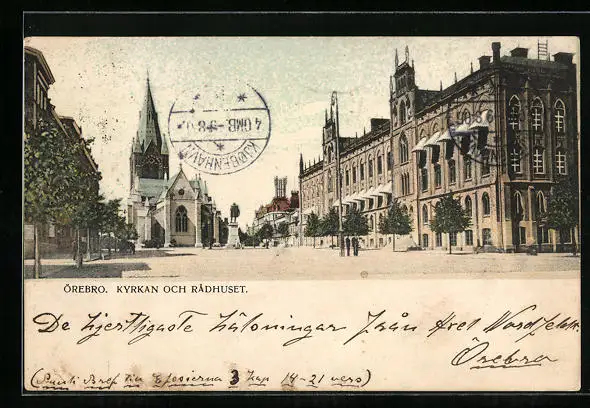 KJØBENHAVN
4 OMB.
ÖREBRO. KYRKAN OCH RÅDHUSET.
De hjertligaste hälsningar från Axel
Örebro
(Pauli Bref till Efesierna 3 Kap 14-21 vers)